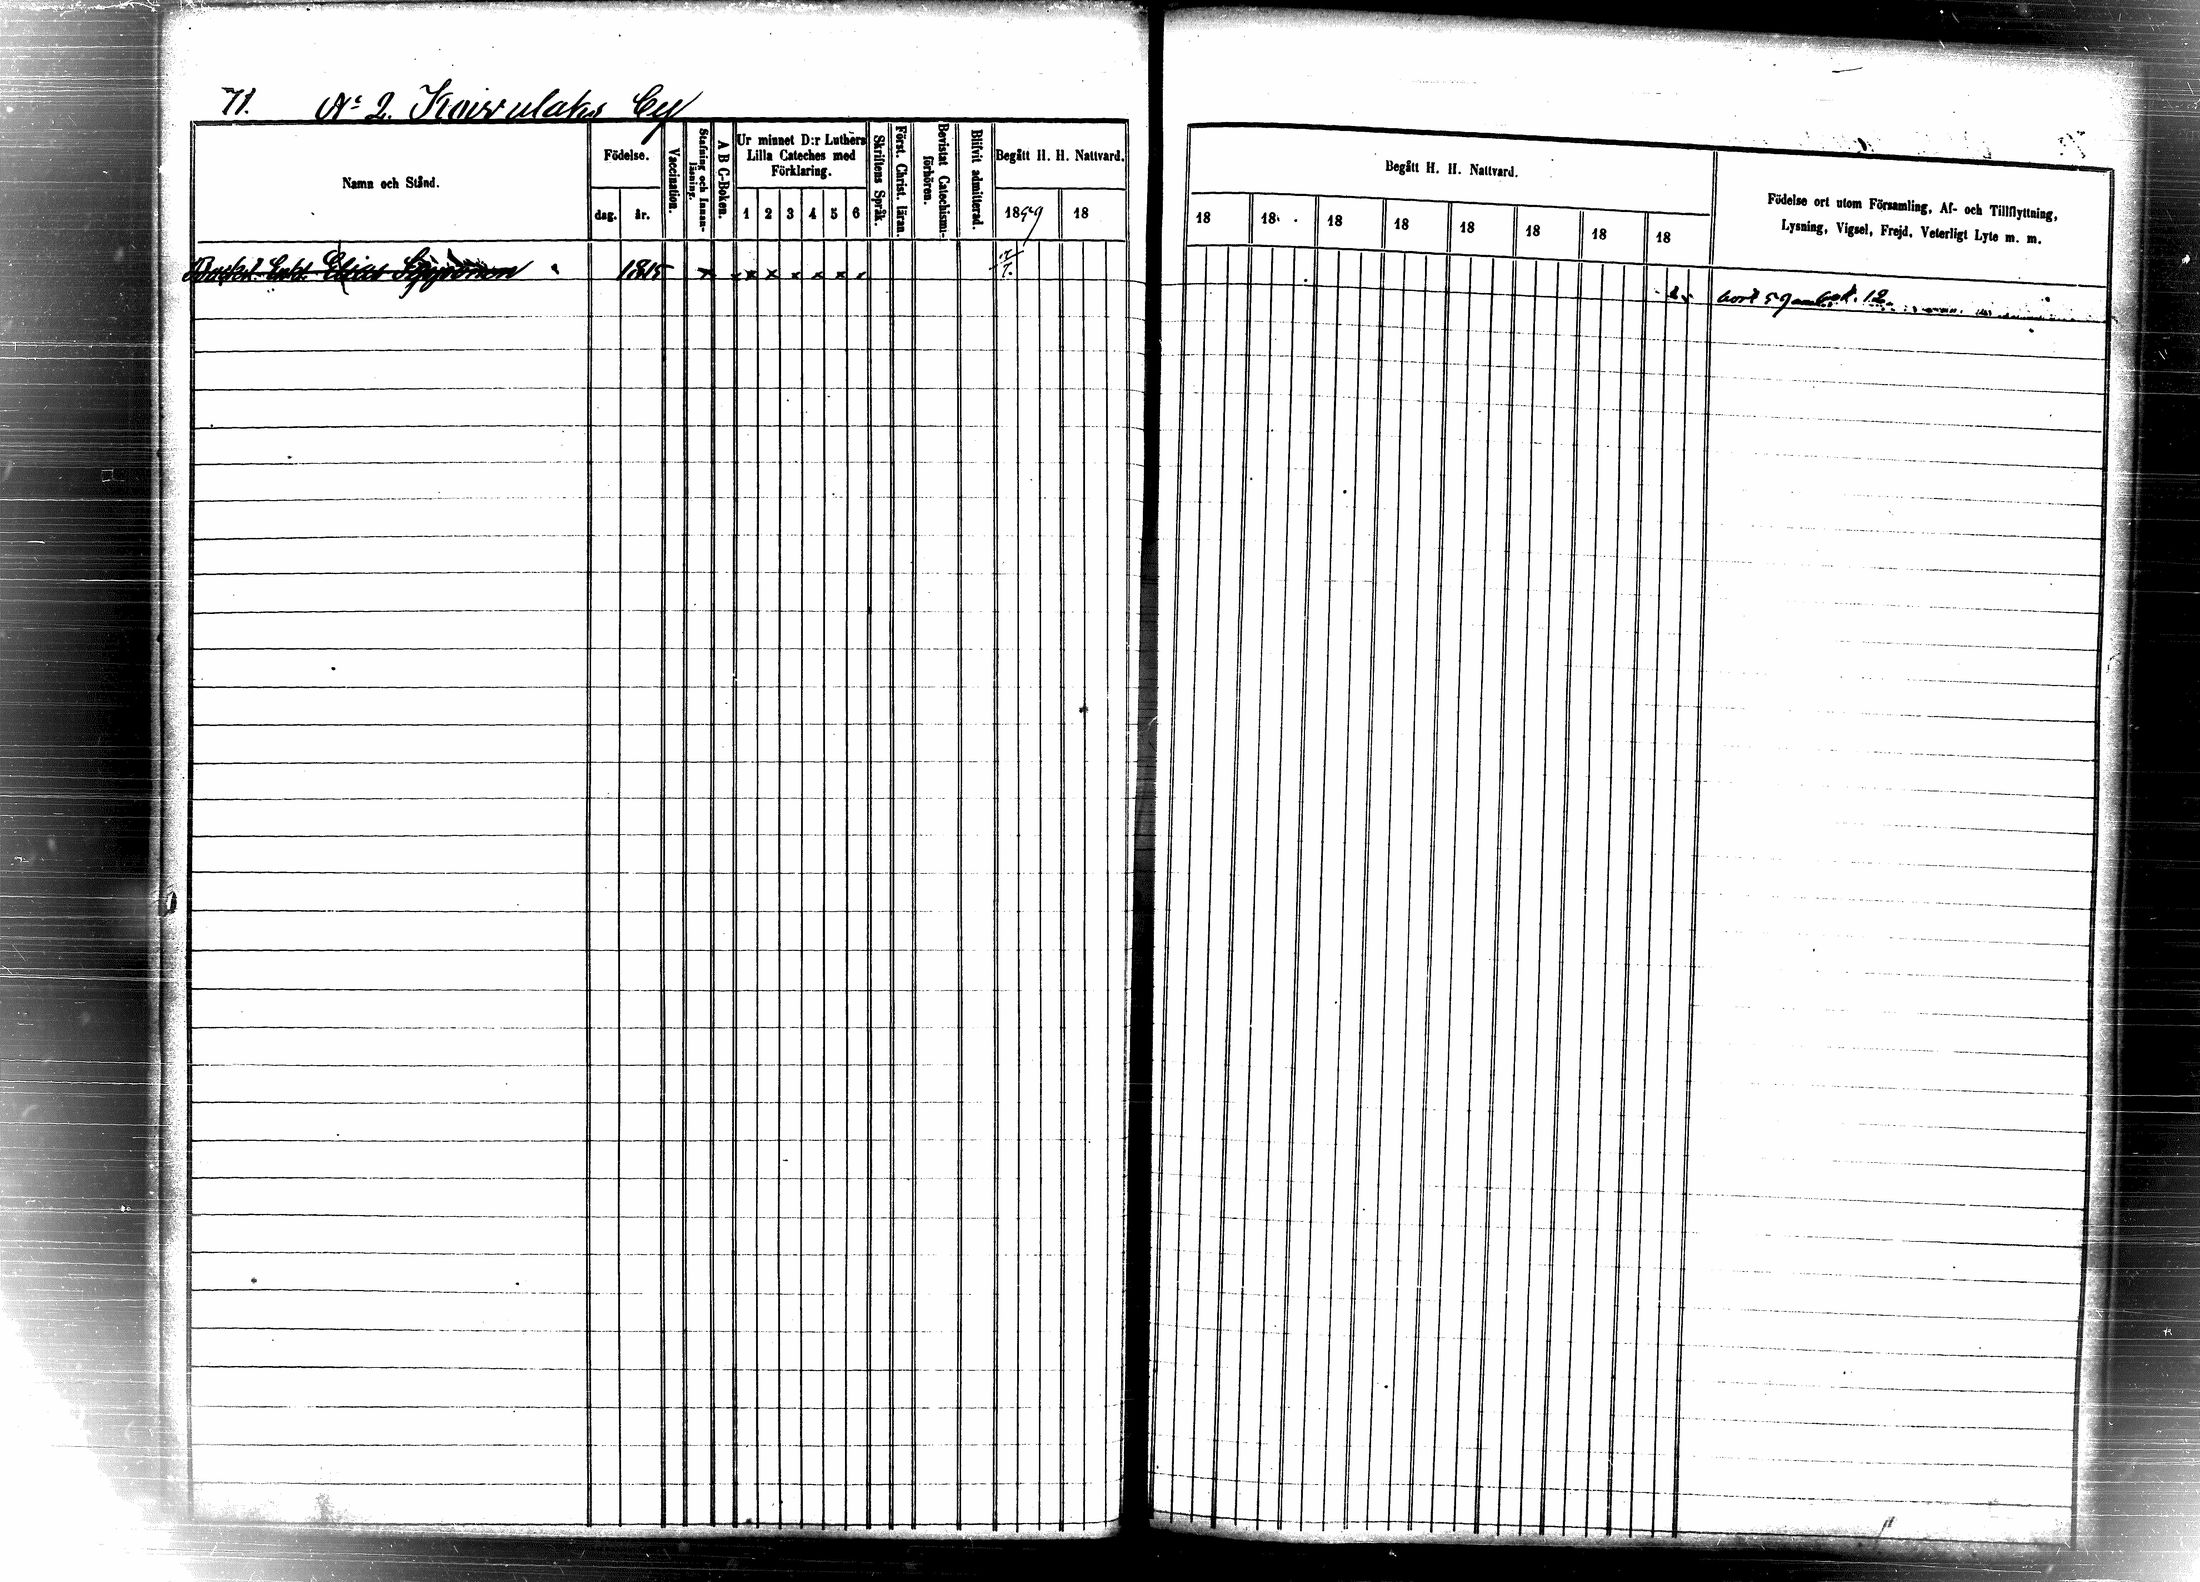 71. No 2. Koivulaks By
Namn och Stånd.
Födelse.
dag. år.
Vaccination.
Stafning och Innan-läsning.
A B C-Boken.
Ur minnet D:r Luthers
Lilla Cateches med
Förklaring.
1 2 3 4 5 6
Skriftens Språk.
Först. Christ. läran.
Bevistat Catechismi-förhören.
Blifvit admitterad.
Begått H. H. Nattvard.
1859 18
Begått H. H. Nattvard.
18 18 18 18 18 18 18 18
Födelse ort utom Församling, Af- och Tillflyttning,
Lysning, Vigsel, Frejd, Veterligt Lyte m. m.
Elias 1815 x x x x x x
bort 59 12.